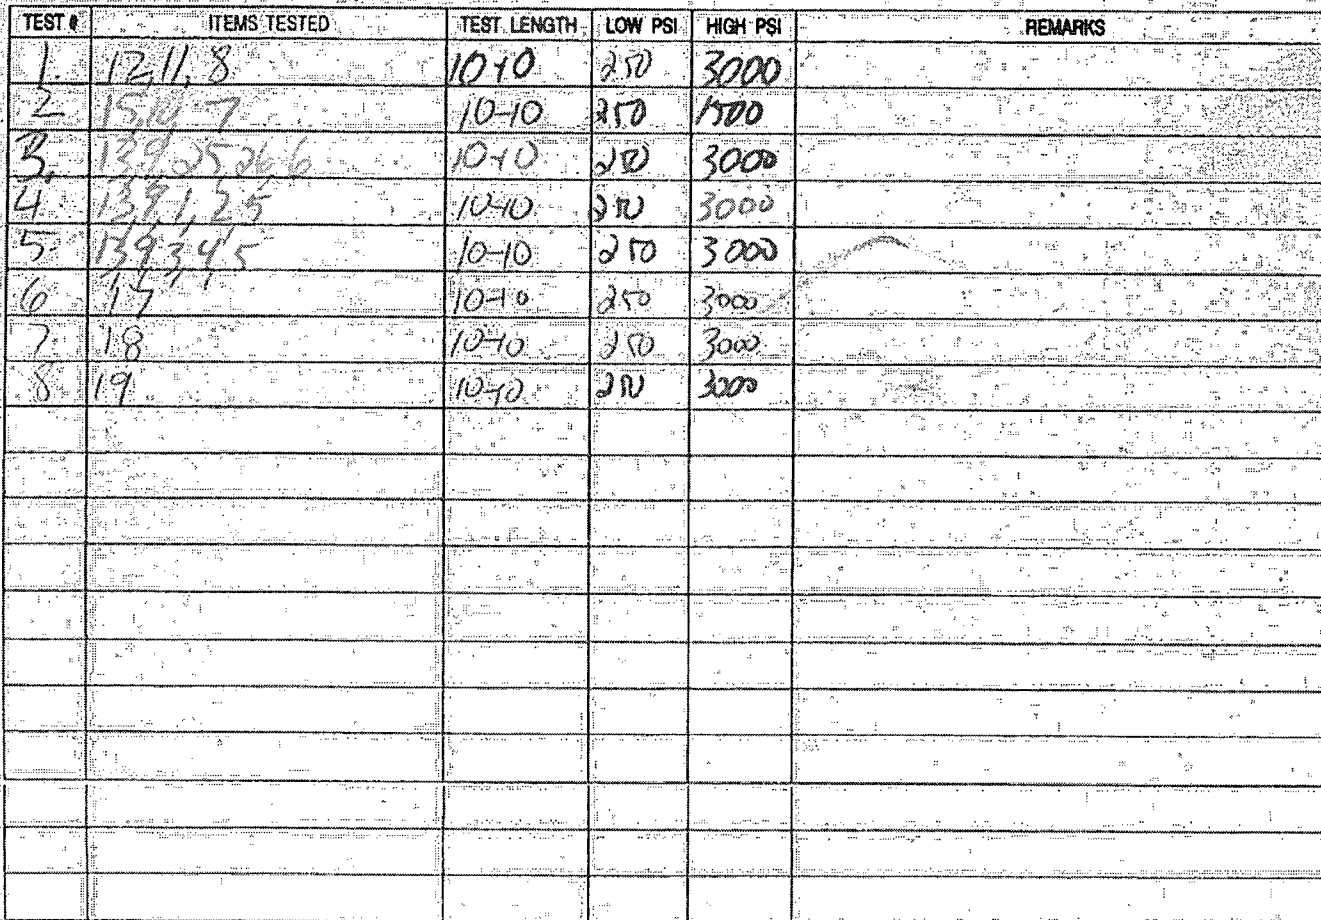 TEST # ITEMS TESTED TEST LENGTH LOW PSI HIGH PSI REMARKS
1. 12, 11, 8 10-10 250 3000
2 15, 10, 7 10-10 250 1500
3. 13, 9, 25, 26, 6 10-10 250 3000
4. 13, 9, 1, 2, 5 10-10 250 3000
5. 13, 9, 3, 4, 5 10-10 250 3000
6 17 10-10 250 3000
7 18 10-10 250 3000
8 19 10-10 250 3000